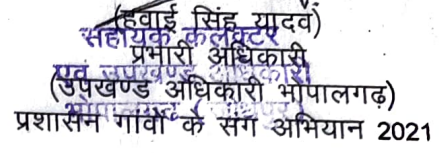 (हवाई सिंह यादव)
सहायक कलेक्टर
प्रभारी अधिकारी
एवं उपखण्ड अधिकारी
(उपखण्ड अधिकारी भोपालगढ़)
भोपालगढ़ (जोधपुर)
प्रशासन गांवों के संग अभियान 2021